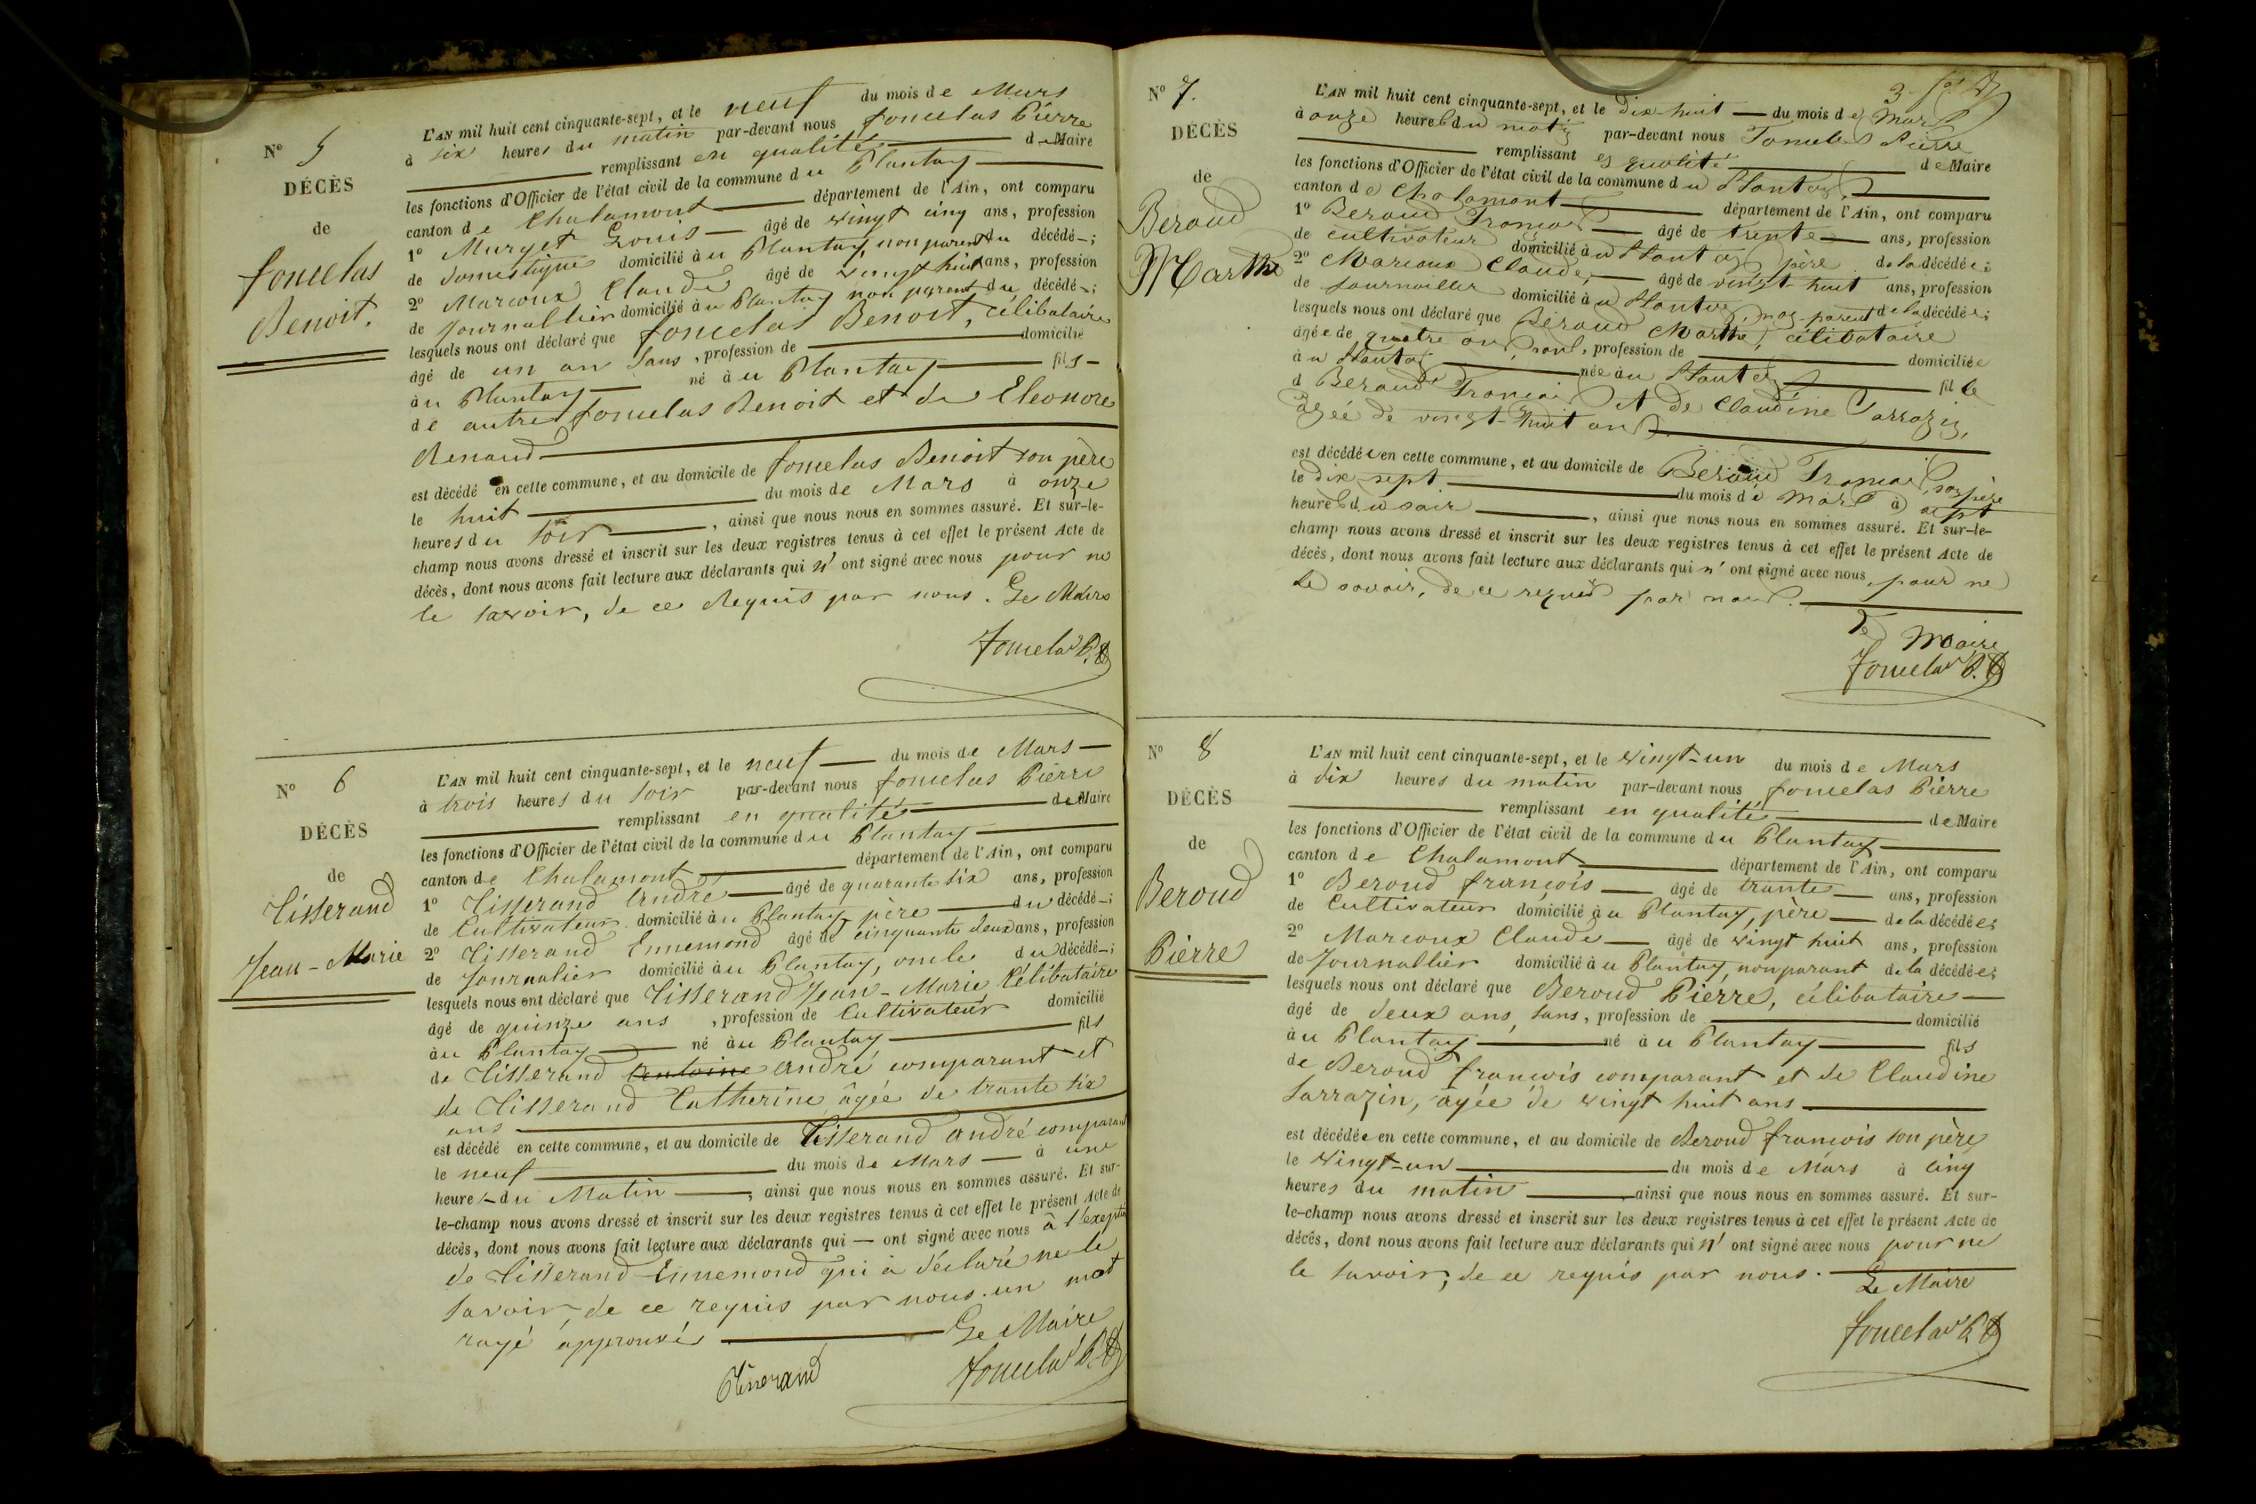 N° 5
DÉCÈS
de
fonclas
Benoit.
L'AN mil huit cent cinquante-sept, et le neuf du mois de Mars
à six heures du matin par-devant nous fonclas Pierre
remplissant en qualité de Maire
les fonctions d'Officier de l'état civil de la commune du Plantay
canton de Chalamont département de l'Ain, ont comparu
1° Murget Louis âgé de vingt cinq ans, profession
de domestique domicilié au Plantay non parent du décédé ;
2° Marcoux Claude âgé de vingt huit ans, profession
de journallier domicilié au Plantay non parent du décédé ;
lesquels nous ont déclaré que fonclas Benoit, célibataire
âgé de un an sans, profession de domicilié
au Plantay né au Plantay fils
de autre fonclas Benoit et de Eleonore
Renaud
est décédé en cette commune, et au domicile de fonclas Benoit son père
le huit du mois de Mars à onze
heures du soir, ainsi que nous nous en sommes assuré. Et sur-le-
champ nous avons dressé et inscrit sur les deux registres tenus à cet effet le présent Acte de
décès, dont nous avons fait lecture aux déclarants qui n' ont signé avec nous pour ne
le savoir, de ce requis par nous. Le Maire
fonclas P.
N° 6
DÉCÈS
de
Tisserand
Jean-Marie
L'AN mil huit cent cinquante-sept, et le neuf du mois de Mars
à trois heures du soir par-devant nous fonclas Pierre
remplissant en qualité de Maire
les fonctions d'Officier de l'état civil de la commune du Plantay
canton de Chalamont département de l'Ain, ont comparu
1° Tisserand André âgé de quarante six ans, profession
de Cultivateur domicilié au Plantay père du décédé ;
2° Tisserand Ennemond âgé de cinquante deux ans, profession
de Journalier domicilié au Plantay, oncle du décédé ;
lesquels nous ont déclaré que Tisserand Jean-Marie Célibataire
âgé de quinze ans, profession de Cultivateur domicilié
au Plantay né au Plantay fils
de Tisserand Antoine andré comparant et
de Tisserand Catherine âgée de trante six
ans
est décédé en cette commune, et au domicile de Tisserand andré comparant
le neuf du mois de Mars à une
heure du Matin, ainsi que nous nous en sommes assuré. Et sur-
le-champ nous avons dressé et inscrit sur les deux registres tenus à cet effet le présent Acte de
décès, dont nous avons fait lecture aux déclarants qui ont signé avec nous à l'exeption
de Tisserand Ennemond qui à déclaré ne le
savoir de ce requis par nous. un mot
rayé approuvé Le Maire
Tisserand fonclas P.
N° 7.
DÉCÈS
de
Beroud
Marthe
L'AN mil huit cent cinquante-sept, et le dix huit du mois de Mars
à onze heures du matin par-devant nous Fonclas Pierre
remplissant es qualité de Maire
les fonctions d'Officier de l'état civil de la commune du Plantay
canton de Chalamont département de l'Ain, ont comparu
1° Beroud François âgé de trente ans, profession
de cultivateur domicilié au Plantay père de la décédée ;
2° Marcoux Claude, âgé de vingt-huit ans, profession
de journallier domicilié au Plantay, non parent de la décédée ;
lesquels nous ont déclaré que Beroud Marthe, célibataire
âgée de quatre ans, sans, profession de domiciliée
au Plantay née au Plantay fille
d Beroud François et de Claudine Sarrazin,
âgée de vingt-huit ans
est décédée en cette commune, et au domicile de Beroud François, son père
le dix sept du mois de Mars à sept
heures du soir, ainsi que nous nous en sommes assuré. Et sur-le-
champ nous avons dressé et inscrit sur les deux registres tenus à cet effet le présent Acte de
décès, dont nous avons fait lecture aux déclarants qui n' ont signé avec nous, pour ne
le savoir, de ce requis par nous.
Le Maire
fonclas P.
N° 8
DÉCÈS
de
Beroud
Pierre
L'AN mil huit cent cinquante-sept, et le vingt-un du mois de Mars
à dix heures du matin par-devant nous fonclas Pierre
remplissant en qualité de Maire
les fonctions d'Officier de l'état civil de la commune du Plantay
canton de Chalamont département de l'Ain, ont comparu
1° Beroud françois âgé de trante ans, profession
de Cultivateur domicilié au Plantay, père de la décédée ;
2° Marcoux Claude âgé de vingt huit ans, profession
de Journallier domicilié au Plantay, non parant de la décédée ;
lesquels nous ont déclaré que Beroud Pierre, célibataire
âgé de deux ans, sans, profession de domicilié
au Plantay né au Plantay fils
de Beroud françois comparant et de Claudine
Sarrazin, agée de vingt huit ans
est décédée en cette commune, et au domicile de Beroud françois son père
le vingt-un du mois de Mars à cinq
heures du matin ainsi que nous nous en sommes assuré. Et sur-
le-champ nous avons dressé et inscrit sur les deux registres tenus à cet effet le présent Acte de
décès, dont nous avons fait lecture aux déclarants qui n' ont signé avec nous pour ne
le savoir, de ce requis par nous.
Le Maire
fonclas P.